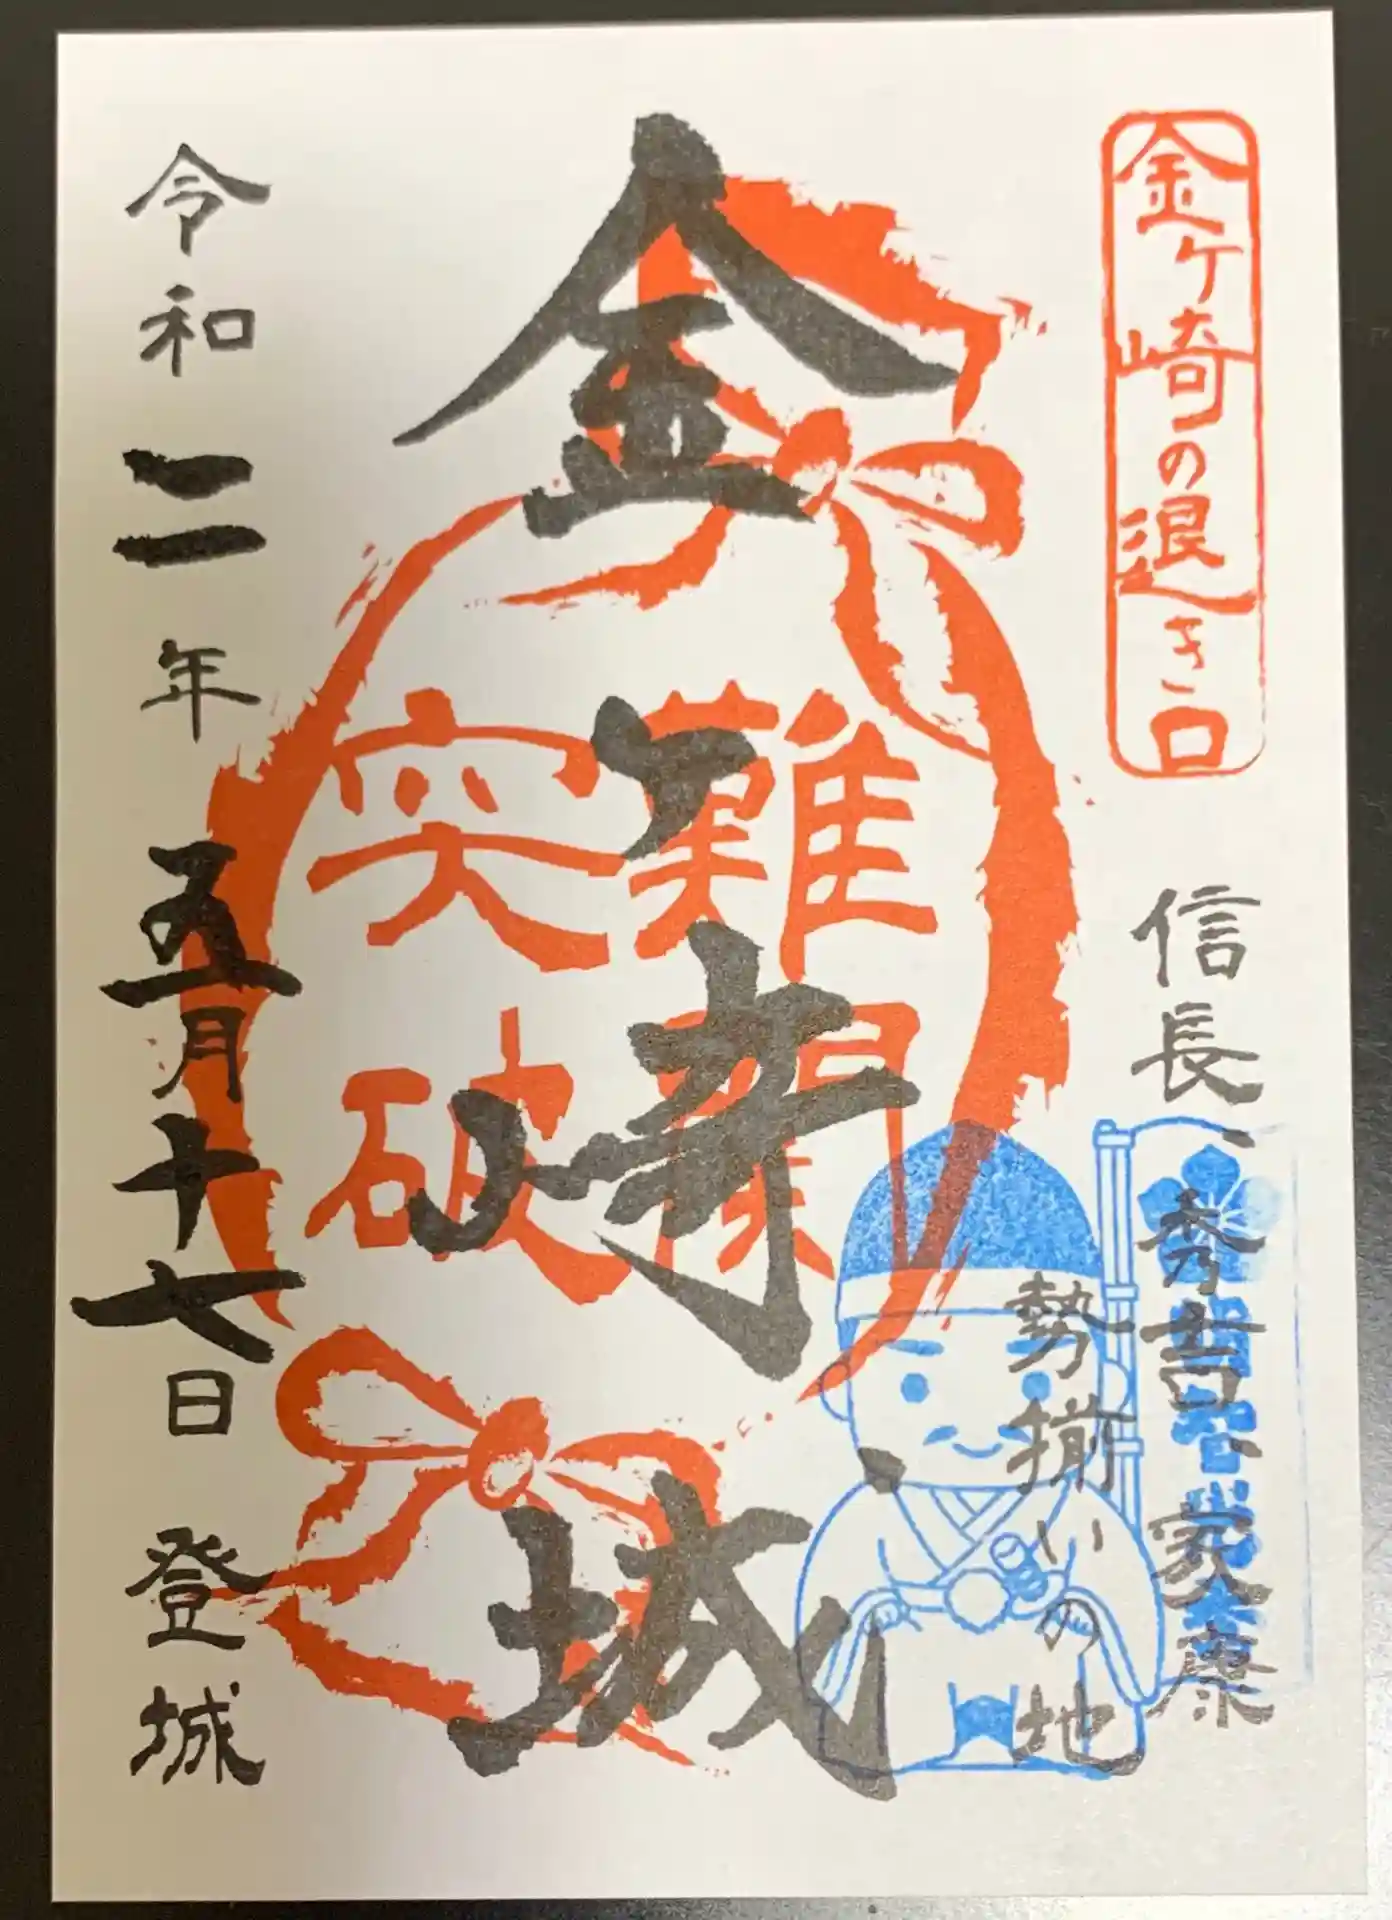 金ヶ崎の退き口
信長 秀吉 家康
勢揃いの地
金ヶ崎城
難関
突破
令和二年 五月十七日 登城